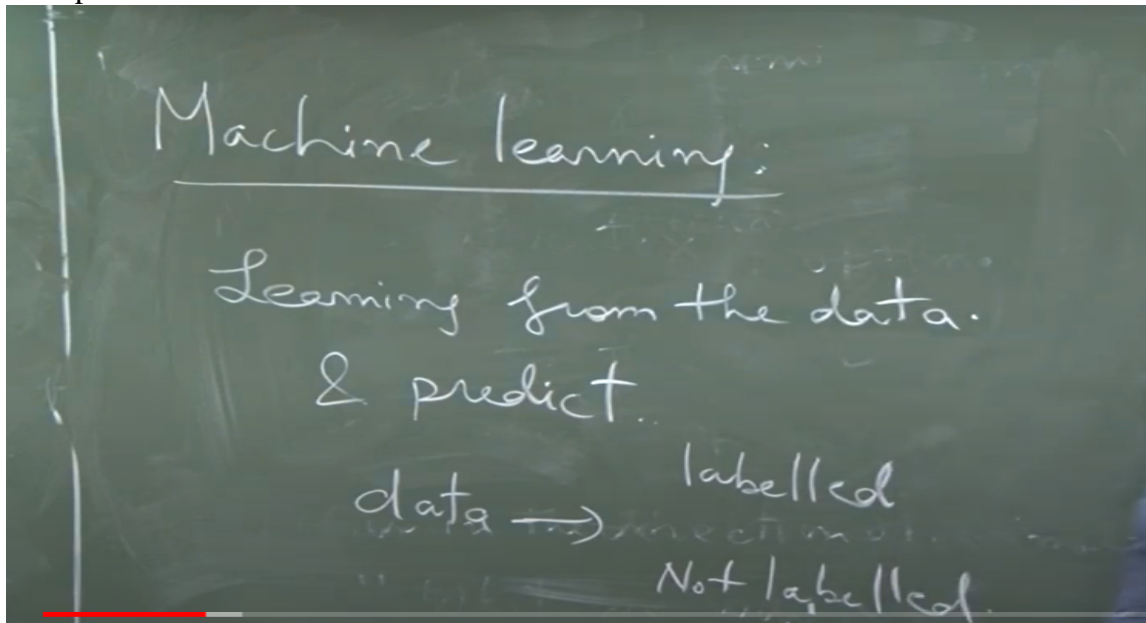 Machine learning:
Learning from the data.
& predict..
data → labelled
Not labelled.